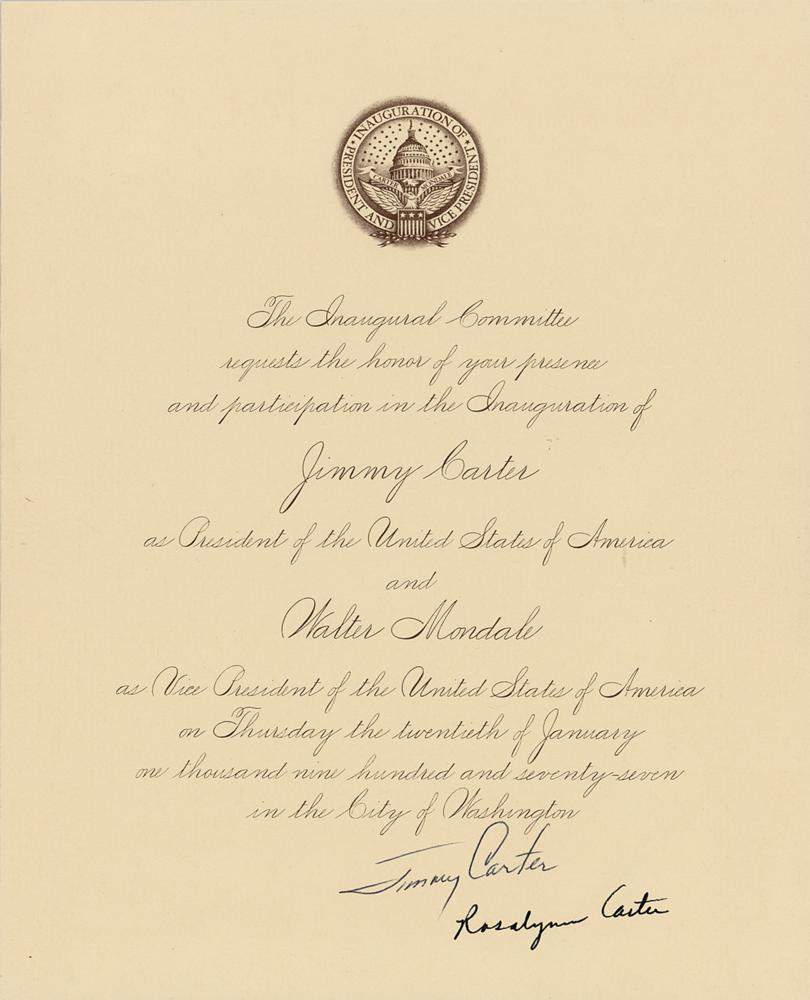 INAUGURATION OF
PRESIDENT AND VICE PRESIDENT
CARTER MONDALE
The Inaugural Committee
requests the honor of your presence
and participation in the Inauguration of
Jimmy Carter
as President of the United States of America
and
Walter Mondale
as Vice President of the United States of America
on Thursday the twentieth of January
one thousand nine hundred and seventy-seven
in the City of Washington
Jimmy Carter
Rosalynn Carter